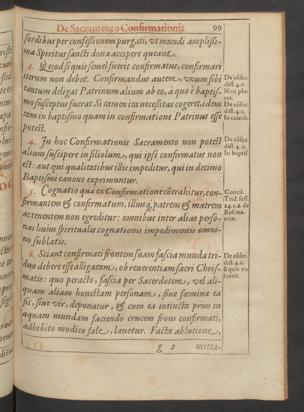 De Sacramento Confirmationis 99
sordibus per confessionem purgati, vt mundi amplissi-
ma Spiritus sancti dona accipere queant.
3. Quod si quis semel fuerit confirmatus, confirmari
iterum non debet. Confirmandus autem, vnum sibi
tantum deligat Patrinum alium ab eo, à quo è baptis-
mo susceptus fuerat. Si tamen ita necessitas cogeret, idem
tam in baptismo quam in confirmatione Patrinus esse
potest.
4. In hoc Confirmationis Sacramento non potest
alium suscipere in filiolum, qui ipse confirmatus non
est: aut qui qualitatibus illis impeditur, qui in decimo
Baptismi canone exprimuntur.
5. Cognatio quæ ex Confirmatione cõtrahitur, con-
firmantem & confirmatum, illiusq́; patrem & matrem
ac tenentem non egreditur: omnibus inter alias perso-
nas huius spiritualis cognationis impedimentis omni-
no sublatis.
6. Sciant confirmati frontem suam fascia munda tri-
duo debere esse alligatam, ob reuerentiam sacri Chris-
matis: quo peracto, fascia per Sacerdotem, vel ali-
quam aliam honestam personam, siue fœmina ea
sit, siue vir, deponatur, & cum ea intincta prius in
aquam mundam faciendo crucem frons confirmati,
adhibito modico sale, lauetur. Facta ablutione,
g 2 mitta-
De cõsec.
dist. 4. c.
Non plu-
res.
De cõsec.
dist. 4. c.
In catech.
De cõsec.
dist. 4. c.
In baptis
Concil.
Trid. sess.
24. c. 2. de
Ref. ma-
trim.
De cõsec.
dist. 4. c.